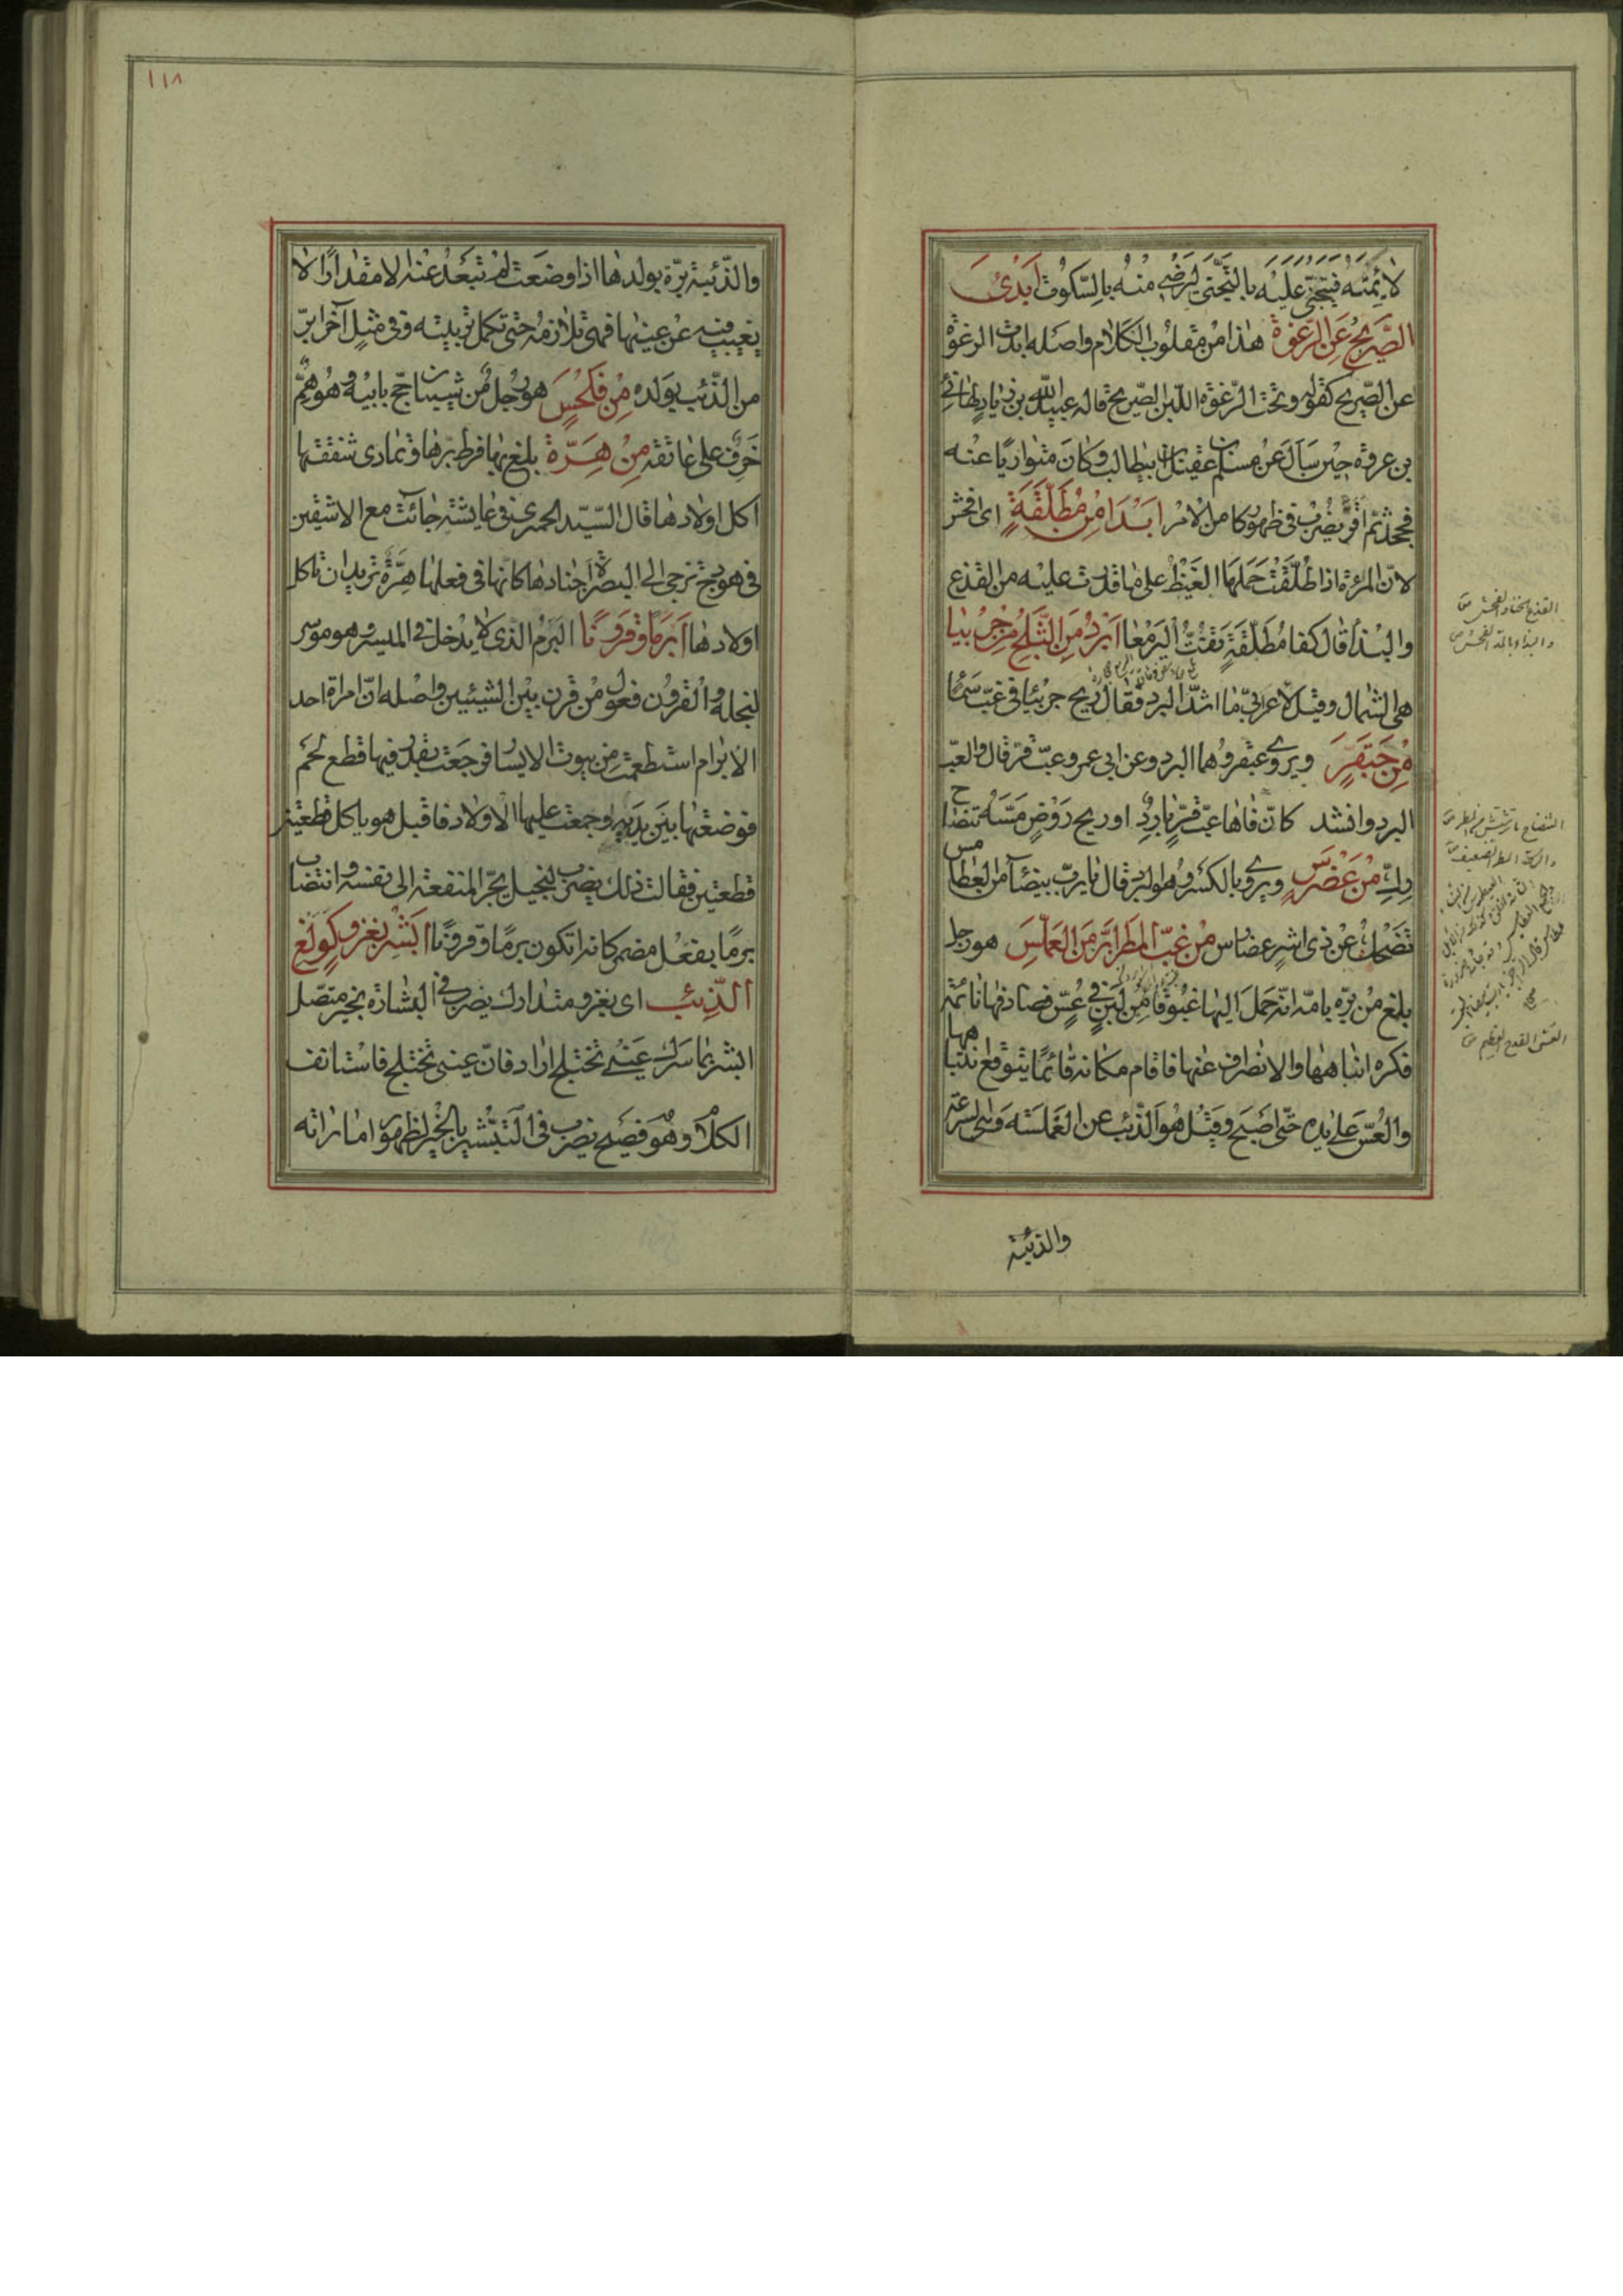 لائمته فيتجنّى عليه بالتجنّى ليرضى منه بالسّكوت أبدى
الصّريح عن الرّغوة هذا من مقلوب الكلام واصله ابدت الرغوة
عن الصّريح كقوله وتحت الرّغوة اللبن الصّريح قاله عبيد الله بن زياد لهانئ
بن عروة حين سأل عن مسلم بن عقيل بن ابيطالب وكان متواريا عنه
فجحد ثم اقرّ يضرب فى ظهور كامن الامر ابذا من مطلّقة اى افحش
لانّ المرئة اذا طلّقت حملها الغيظ على ما قدرت عليه من القذع
والبذاء قال كفا مطلّقة تفتّ اليرمعا ابرد من الثّلج من جربيا
هى الشمال وقيل لاعرابىّ ما اشدّ البرد فقال ريح جربيا فى غبّ سما
من حبقرّ ويروى عبقر وهما البرد وعن ابى عمرو عبّ قرّ قال والعبّ
البرد وانشد كانّ فاها عبّ قرّ بارد او ريح روض مسّه تنضاح
رك من عضرس ويروى بالكسر وهو البرد قال يا ربّ بيضاء من العطامس
تضحك عن ذى اشر عضارس من غبّ المطر ابرّ من العملّس هو رجل
بلغ من برّه بامّه انّه حمل اليها غبوقا من لبن فى عسّ فصادفها نائمة
فكره انباهها والانصراف عنها فاقام مكانه قائما يتوقع انتباهها
والعسّ على يده حتّى اصبح وقيل هو الذّئب عن العملسة وهى السرعة
والذئبة
القذع الخنا والفحش ص
والبذاء بالمد الفحش ص
العسّ القدح العظيم ص
١١٨
والذّئبة برّة بولدها اذا وضعت لم تبعد عنه الا مقدارا لا
يغيب فيه عن عينها فهى تلازمه حتى تكمل تربيته وفى مثل آخر ابرّ
من الذّئب بولده من فلحس هو رجل من شيبان حجّ بابيه وهو همّ
خرف على عاتقه من هرّة بلغ بها فرط برّها وتمادى شفقتها
اكل اولادها قال السّيّد الحميرى فى عايشة جائت مع الاشقين
فى هودج تزجى الى البصرة اجنادها كانها فى فعلها هرّة تريد ان تاكل
اولادها أبرما وقرونا البرم الذى لا يدخل فى الميسر وهو موسر
لبخله والقرون فعول من قرن بين الشيئين واصله انّ امراة احد
الابرام استطعمت من بيوت الايسار فرجعت بقدر فيها قطع لحم
فوضعتها بين يديه وجمعت عليها الاولاد فاقبل هو ياكل قطعتين
قطعتين فقالت ذلك يضرب لبخيل يجرّ المنفعة الى نفسه وانتصاب
برما بفعل مضمر كانه اتكون برما وقرونا ابشر بغزو كولغ
الذّئب اى بغزو متدارك يضرب فى البشارة بخير متصل
ابشر بما سرك عينى تختلج اراد فانّ عينى تختلج فاستانف
الكلام وهو فصيح يضرب فى التبشير بالخير لظهور اماراته